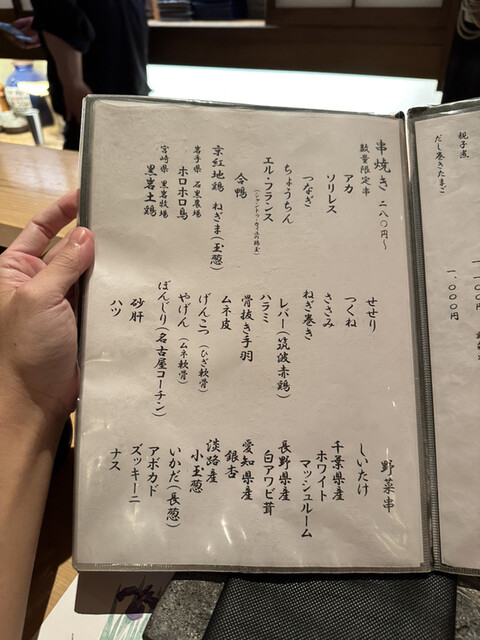 串焼き 二八〇円〜
数量限定串
アカ
ソリレス
つなぎ
ちょうちん
エル・フランス
合鴨
京紅地鶏 ねぎま(玉葱)
岩手県 石黒農場
ホロホロ鳥
宮崎県 黒岩牧場
黒岩土鶏
せせり
つくね
ささみ
ねぎ巻き
レバー(筑波赤鶏)
ハラミ
骨抜き手羽
ムネ皮
げんこつ(ひざ軟骨)
やげん(ムネ軟骨)
ぼんじり(名古屋コーチン)
砂肝
ハツ
野菜串
しいたけ
千葉県産
ホワイト
マッシュルーム
長野県産
白アワビ茸
愛知県産
銀杏
淡路産
小玉葱
いかだ(長葱)
アボカド
ズッキーニ
ナス
親子煮
だし巻きたまご
一、〇〇〇円
一、〇〇〇円